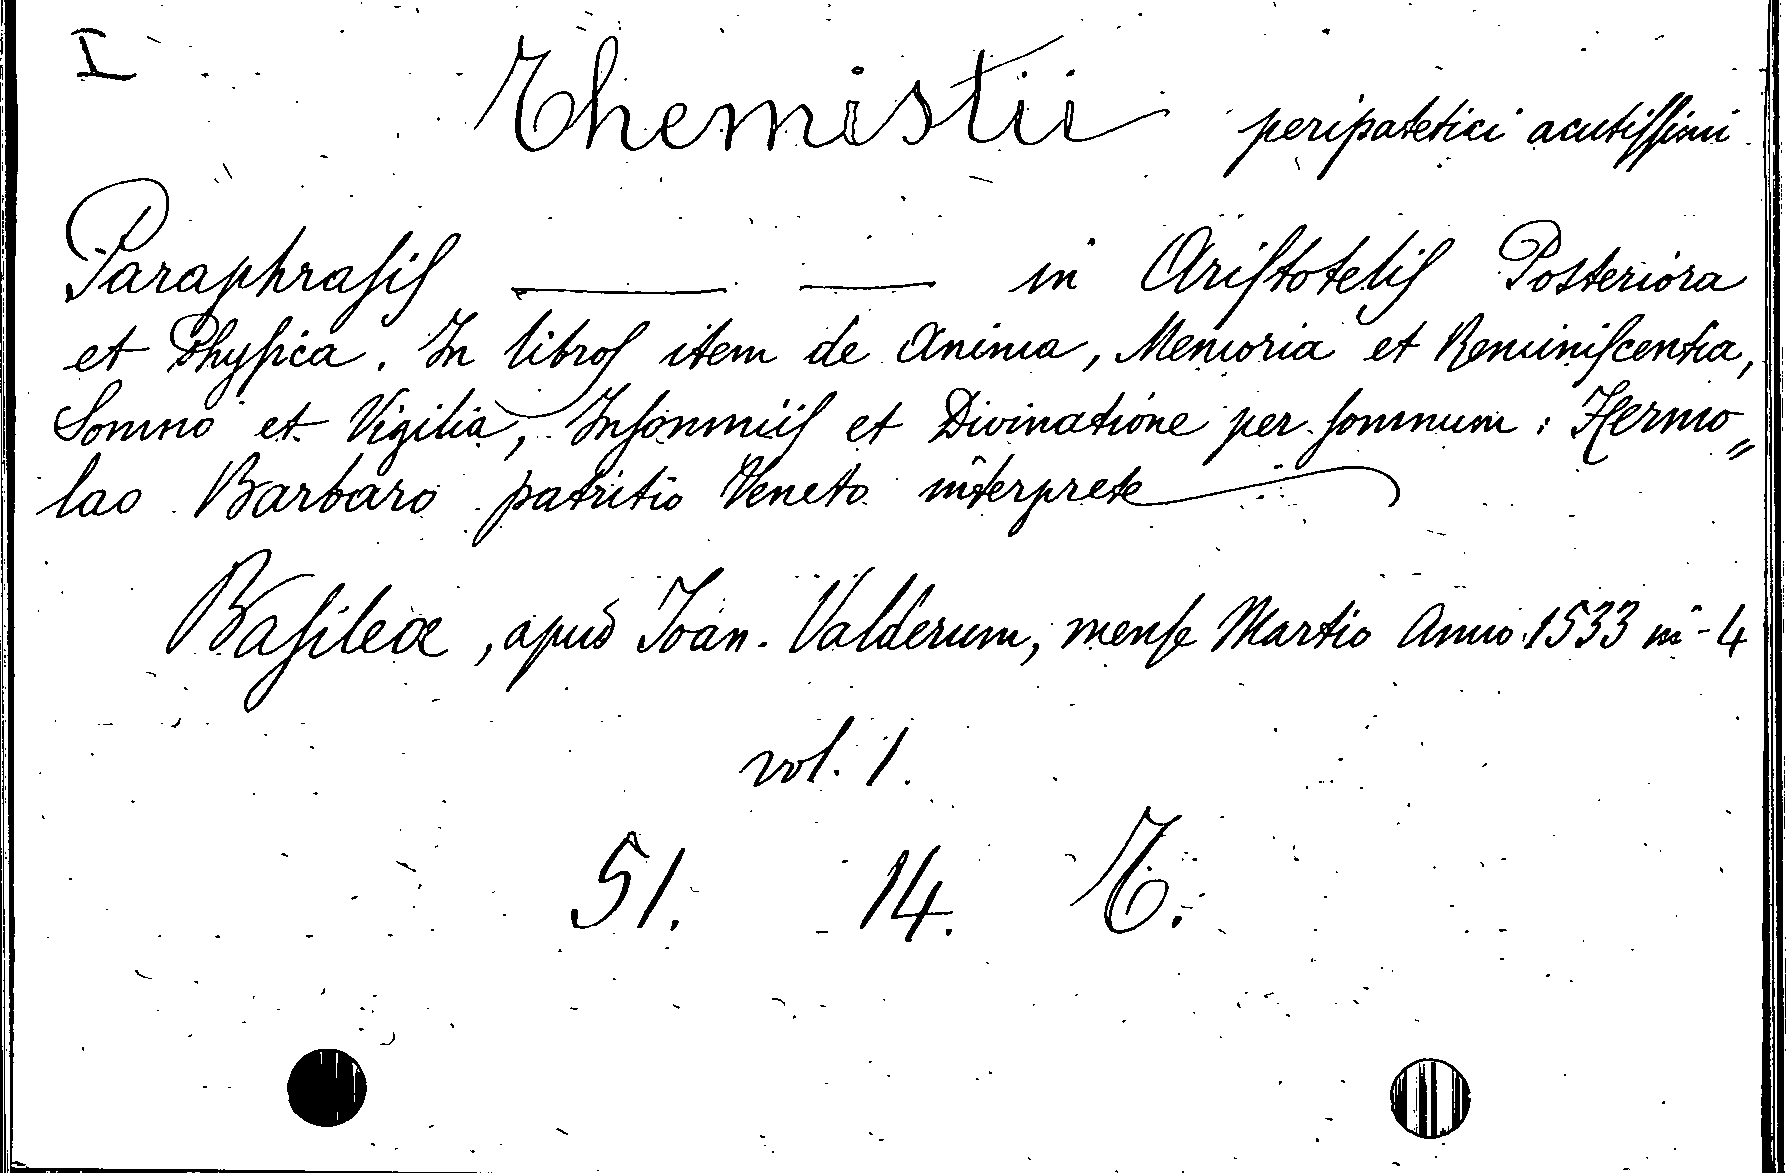 I
Themistii peripatetici acutissimi
Paraphrasis ——— —— in Aristotelis Posteriora
et Physica. In libros item de Anima, Memoria et Reminiscentia,
Somno et Vigilia, Insomniis et Divinatione per somnum: Hermo„
lao Barbaro patritio Veneto interprete
Basileæ, apud Joan. Valderum, mense Martio Anno 1533 in-4
vol. 1.
51. 14. T.